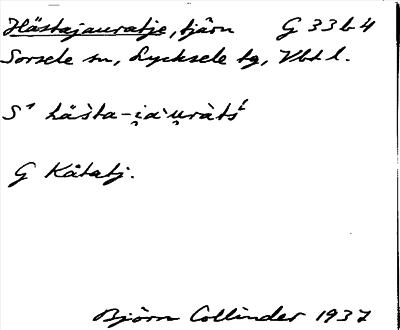 Hästajauratje, tjärn G 33 b 4
Sorsele sn, Lycksele tg, Vbt l.
S¹ hä̀sta-i̯a`u̯ràtś
G Kåtatj.
Björn Collinder 1937